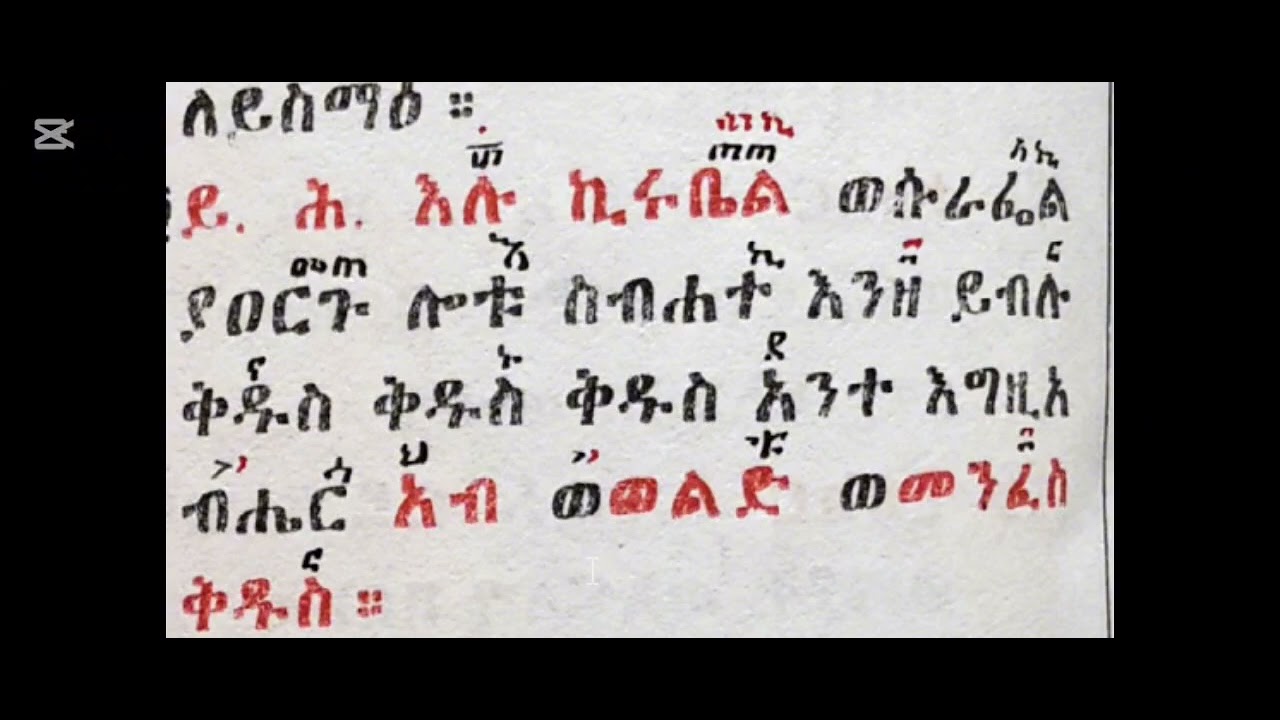 ለይስማዕ ።
ይ. ሕ. እሉ ኪሩቤል ወሱራፌል
ያዐርጉ ሎቱ ስብሐተ እንዘ ይብሉ
ቅዱስ ቅዱስ ቅዱስ አንተ እግዚአ
ብሔር አብ ወወልድ ወመንፈስ
ቅዱስ ።